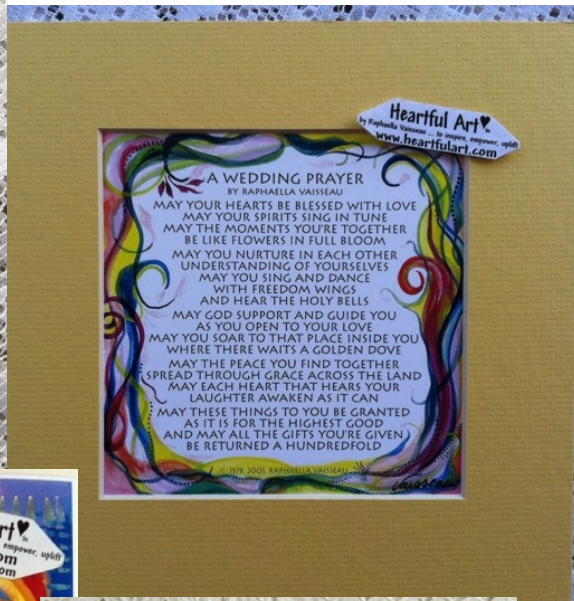 Heartful Art
by Raphaella Vaisseau ... to inspire, empower, uplift
www.heartfulart.com
A WEDDING PRAYER
BY RAPHAELLA VAISSEAU
MAY YOUR HEARTS BE BLESSED WITH LOVE
MAY YOUR SPIRITS SING IN TUNE
MAY THE MOMENTS YOU'RE TOGETHER
BE LIKE FLOWERS IN FULL BLOOM
MAY YOU NURTURE IN EACH OTHER
UNDERSTANDING OF YOURSELVES
MAY YOU SING AND DANCE
WITH FREEDOM WINGS
AND HEAR THE HOLY BELLS
MAY GOD SUPPORT AND GUIDE YOU
AS YOU OPEN TO YOUR LOVE
MAY YOU SOAR TO THAT PLACE INSIDE YOU
WHERE THERE WAITS A GOLDEN DOVE
MAY THE PEACE YOU FIND TOGETHER
SPREAD THROUGH GRACE ACROSS THE LAND
MAY EACH HEART THAT HEARS YOUR
LAUGHTER AWAKEN AS IT CAN
MAY THESE THINGS TO YOU BE GRANTED
AS IT IS FOR THE HIGHEST GOOD
AND MAY ALL THE GIFTS YOU'RE GIVEN
BE RETURNED A HUNDREDFOLD
© 1979, 2003, RAPHAELLA VAISSEAU
Vaisseau
art
empower, uplift
om
om